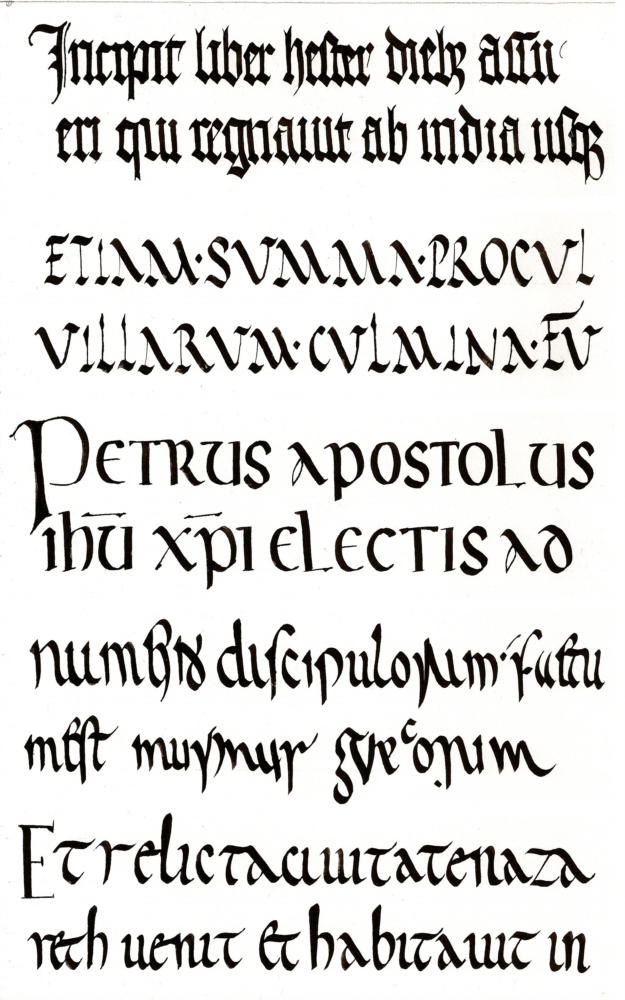 Incipit liber hester dieb; assu
eri qui regnauit ab india usq;
ETIAM·SVMMA·PROCVL
VILLARVM·CVLMINA·FV
PETRUS APOSTOLUS
ihū xp̄i electis ad
discipulorum· factu
mest murmur grecorum
Et relicta ciuitate naza
reth uenit et habitauit in